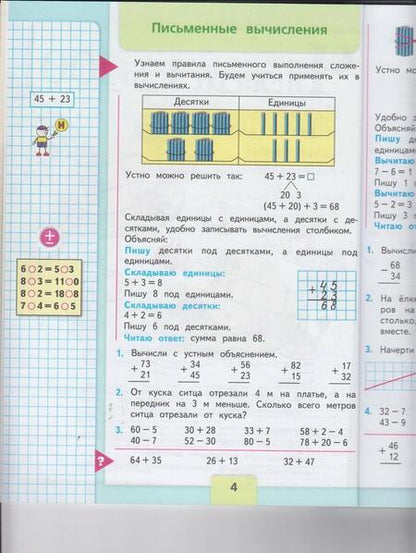 Письменные вычисления
Узнаем правила письменного выполнения сложе-
ния и вычитания. Будем учиться применять их в
вычислениях.
45 + 23
Десятки Единицы
Устно можно решить так: 45 + 23 = □
20 3
(45 + 20) + 3 = 68
Складывая единицы с единицами, а десятки с де-
сятками, удобно записывать вычисления столбиком.
Объясняй:
Пишу десятки под десятками, а единицы под
единицами.
Складываю единицы:
5 + 3 = 8
Пишу 8 под единицами.
Складываю десятки:
4 + 2 = 6
Пишу 6 под десятками.
Читаю ответ: сумма равна 68.
+ 45
23
68
±
6○2=5○3
8○3=11○0
8○2=18○8
7○4=6○5
1. Вычисли с устным объяснением.
+ 73 + 34 + 56 + 82 + 17
21 45 23 15 32
2. От куска ситца отрезали 4 м на платье, а на
передник на 3 м меньше. Сколько всего метров
ситца отрезали от куска?
3. 60 − 5 30 + 28 33 + 7 58 + 2 − 4
40 − 7 52 − 30 80 − 5 78 + 20 − 6
? 64 + 35 26 + 13 32 + 47
4
Устно мо
Удобно з
Объясняй
Пишу д
единицам
Вычитаю
7 − 6 = 1
Пишу 1
Вычитаю
5 − 2 = 3
Пишу 3
Читаю о
1. Вычисли
− 68
34
2. На ёлк
ров на
столько,
вместе.
3. Начерти
4. 32 − 7
43 − 9
+ 46
12